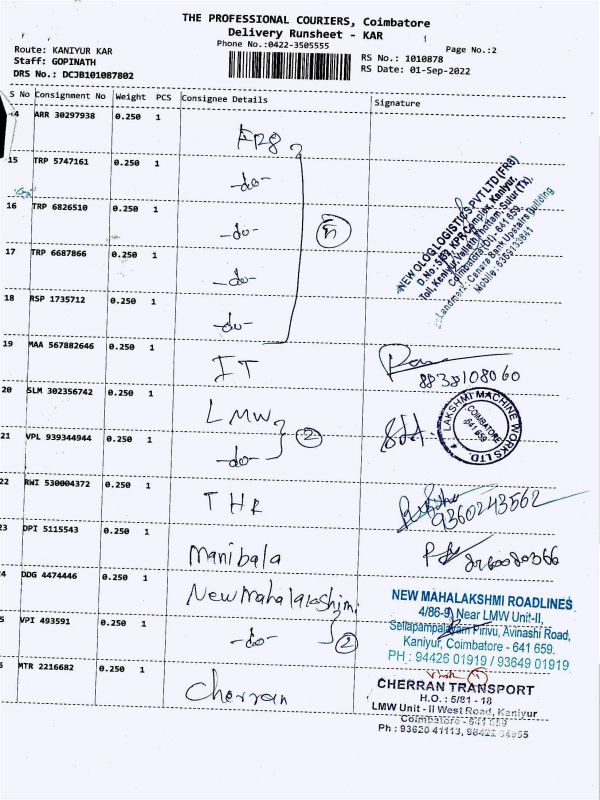 THE PROFESSIONAL COURIERS, Coimbatore
Delivery Runsheet - KAR
Phone No.:0422-3505555
Page No.:2
Route: KANIYUR KAR
Staff: GOPINATH
DRS No.: DCJB101087802
RS No.: 1010878
RS Date: 01-Sep-2022
S No Consignment No Weight PCS Consignee Details Signature
4 ARR 30297938 0.250 1
FR8
15 TRP 5747161 0.250 1
-do-
16 TRP 6826510 0.250 1
-do-
5
17 TRP 6687866 0.250 1
-do-
18 RSP 1735712 0.250 1
-do-
NEW OLOG LOGISTICS PVT LTD (FR8)
D.No: 5/69, KPR Complex, Kaniyur,
Toll, Kaniyur, Thottam, Sulur (TK),
Coimbatore(Dt) - 641 659.
Landmark: Canara Bank Upstairs Building
Mobile: 6369133641
19 MAA 567882646 0.250 1
IT
8838108060
20 SLM 302356742 0.250 1
LMW
2
LAKSHMI MACHINE WORKS LTD.
COIMBATORE
641 659
21 VPL 939344944 0.250 1
-do-
22 RWI 530004372 0.250 1
THR
9360243562
23 DPI 5115543 0.250 1
Manibala
24 DDG 4474446 0.250 1
New mahalakshimi
5 VPI 493591 0.250 1
-do-
2
NEW MAHALAKSHMI ROADLINES
4/86-9, Near LMW Unit-II,
Sellapampalayam Pirivu, Avinashi Road,
Kaniyur, Coimbatore - 641 659.
PH : 94426 01919 / 93649 01919
6 MTR 2216682 0.250 1
Cherran
1
CHERRAN TRANSPORT
H.O. : 5/81 - 18
LMW Unit - II West Road, Kaniyur
Coimbatore - 641 659
Ph : 93620 41113, 98422